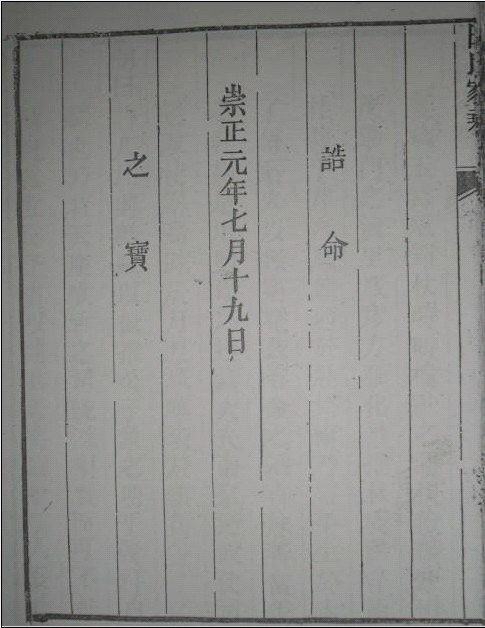 誥命
崇正元年七月十九日
之寶